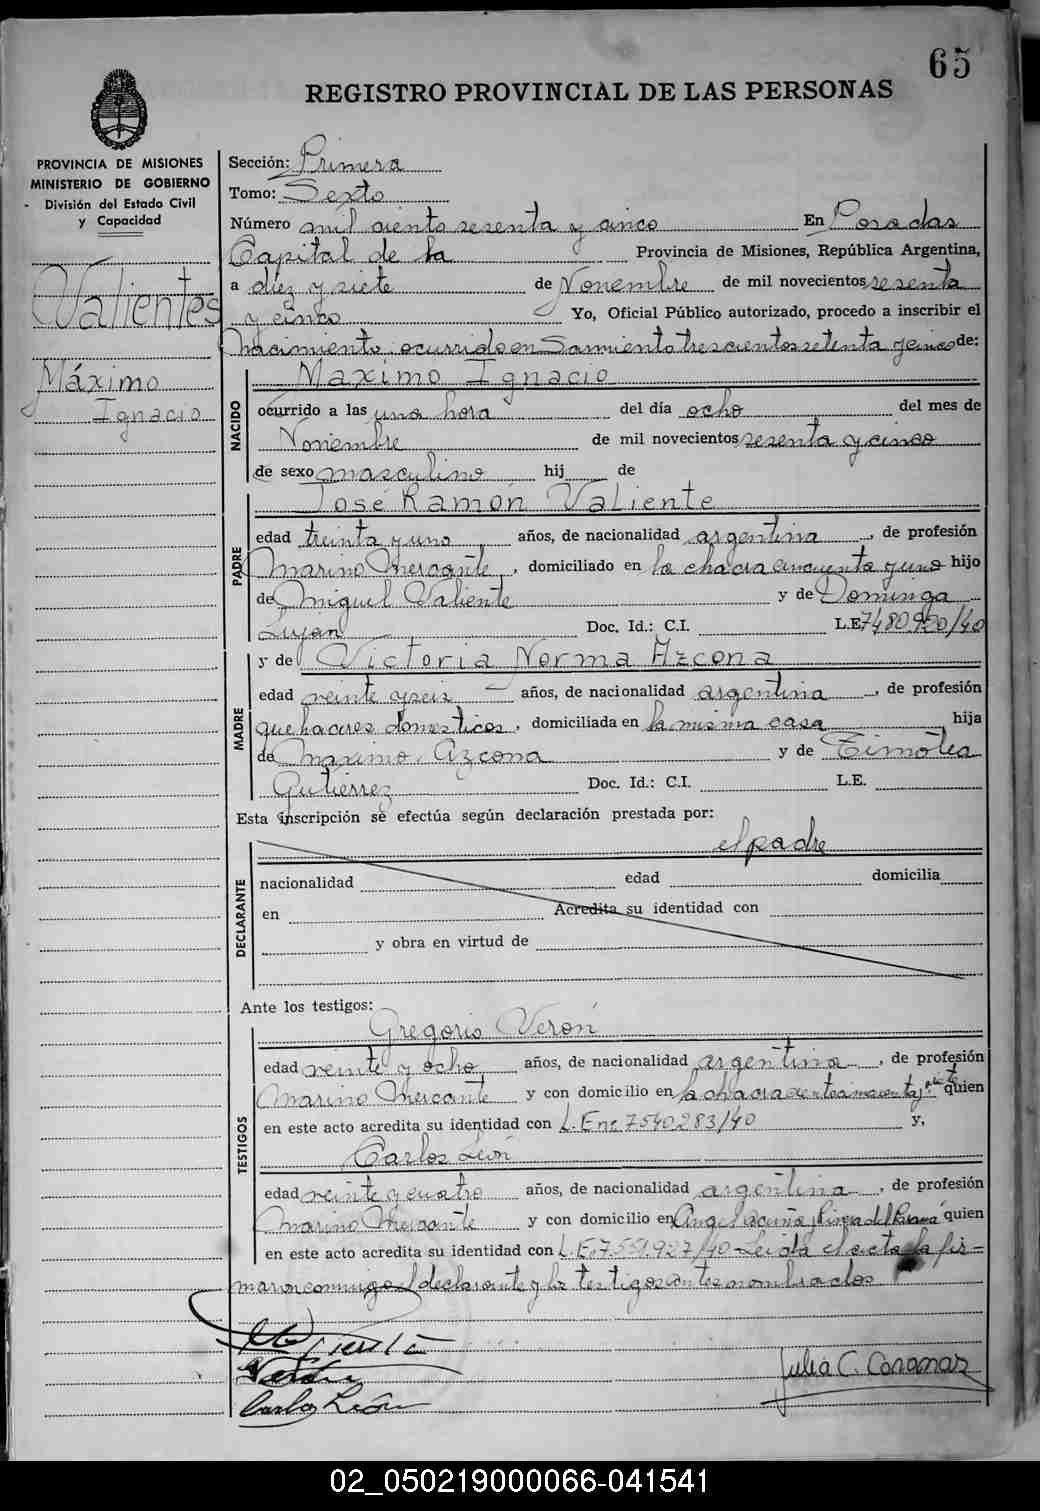 65
REGISTRO PROVINCIAL DE LAS PERSONAS
PROVINCIA DE MISIONES
MINISTERIO DE GOBIERNO
División del Estado Civil
y Capacidad
Valientes
Máximo
Ignacio
Sección: Primera
Tomo: Sexto
Número mil ciento sesenta y cinco En Posadas
Capital de la Provincia de Misiones, República Argentina,
a diez y siete de Noviembre de mil novecientos sesenta
y cinco Yo, Oficial Público autorizado, procedo a inscribir el
nacimiento ocurrido en Sarmiento trescientos setenta y cinco de:
NACIDO
Maximo Ignacio
ocurrido a las una hora del día ocho del mes de
Noviembre de mil novecientos sesenta y cinco
de sexo masculino hij de
PADRE
José Ramón Valiente
edad treinta y uno años, de nacionalidad argentina, de profesión
Marino Mercante, domiciliado en la chacra cincuenta y uno hijo
de Miguel Valiente y de Dominga
Luján Doc. Id.: C.I. L.E. 7480920/40
y de Victoria Norma Azcona
MADRE
edad veinte y seis años, de nacionalidad argentina, de profesión
quehaceres domesticos, domiciliada en la misma casa hija
de Maximo Azcona y de Timótea
Gutierrez Doc. Id.: C.I. L.E.
Esta inscripción se efectúa según declaración prestada por:
el padre
DECLARANTE
nacionalidad edad domicilia
en Acredita su identidad con
y obra en virtud de
Ante los testigos:
TESTIGOS
Gregorio Verón
edad veinte y ocho años, de nacionalidad argentina, de profesión
Marino Mercante y con domicilio en la chacra ciento cincuenta y quien
en este acto acredita su identidad con L. En: 7540283/40 y,
Carlos León
edad veinte y cuatro años, de nacionalidad argentina, de profesión
Marino Mercante y con domicilio en Angel Acuña quien
en este acto acredita su identidad con L.E. 7.551.927/40 Leida el acta la fir=
maron conmigo el declarante y los testigos antes nombrados
Verón
Carlos León
Julia C.
02_050219000066-041541